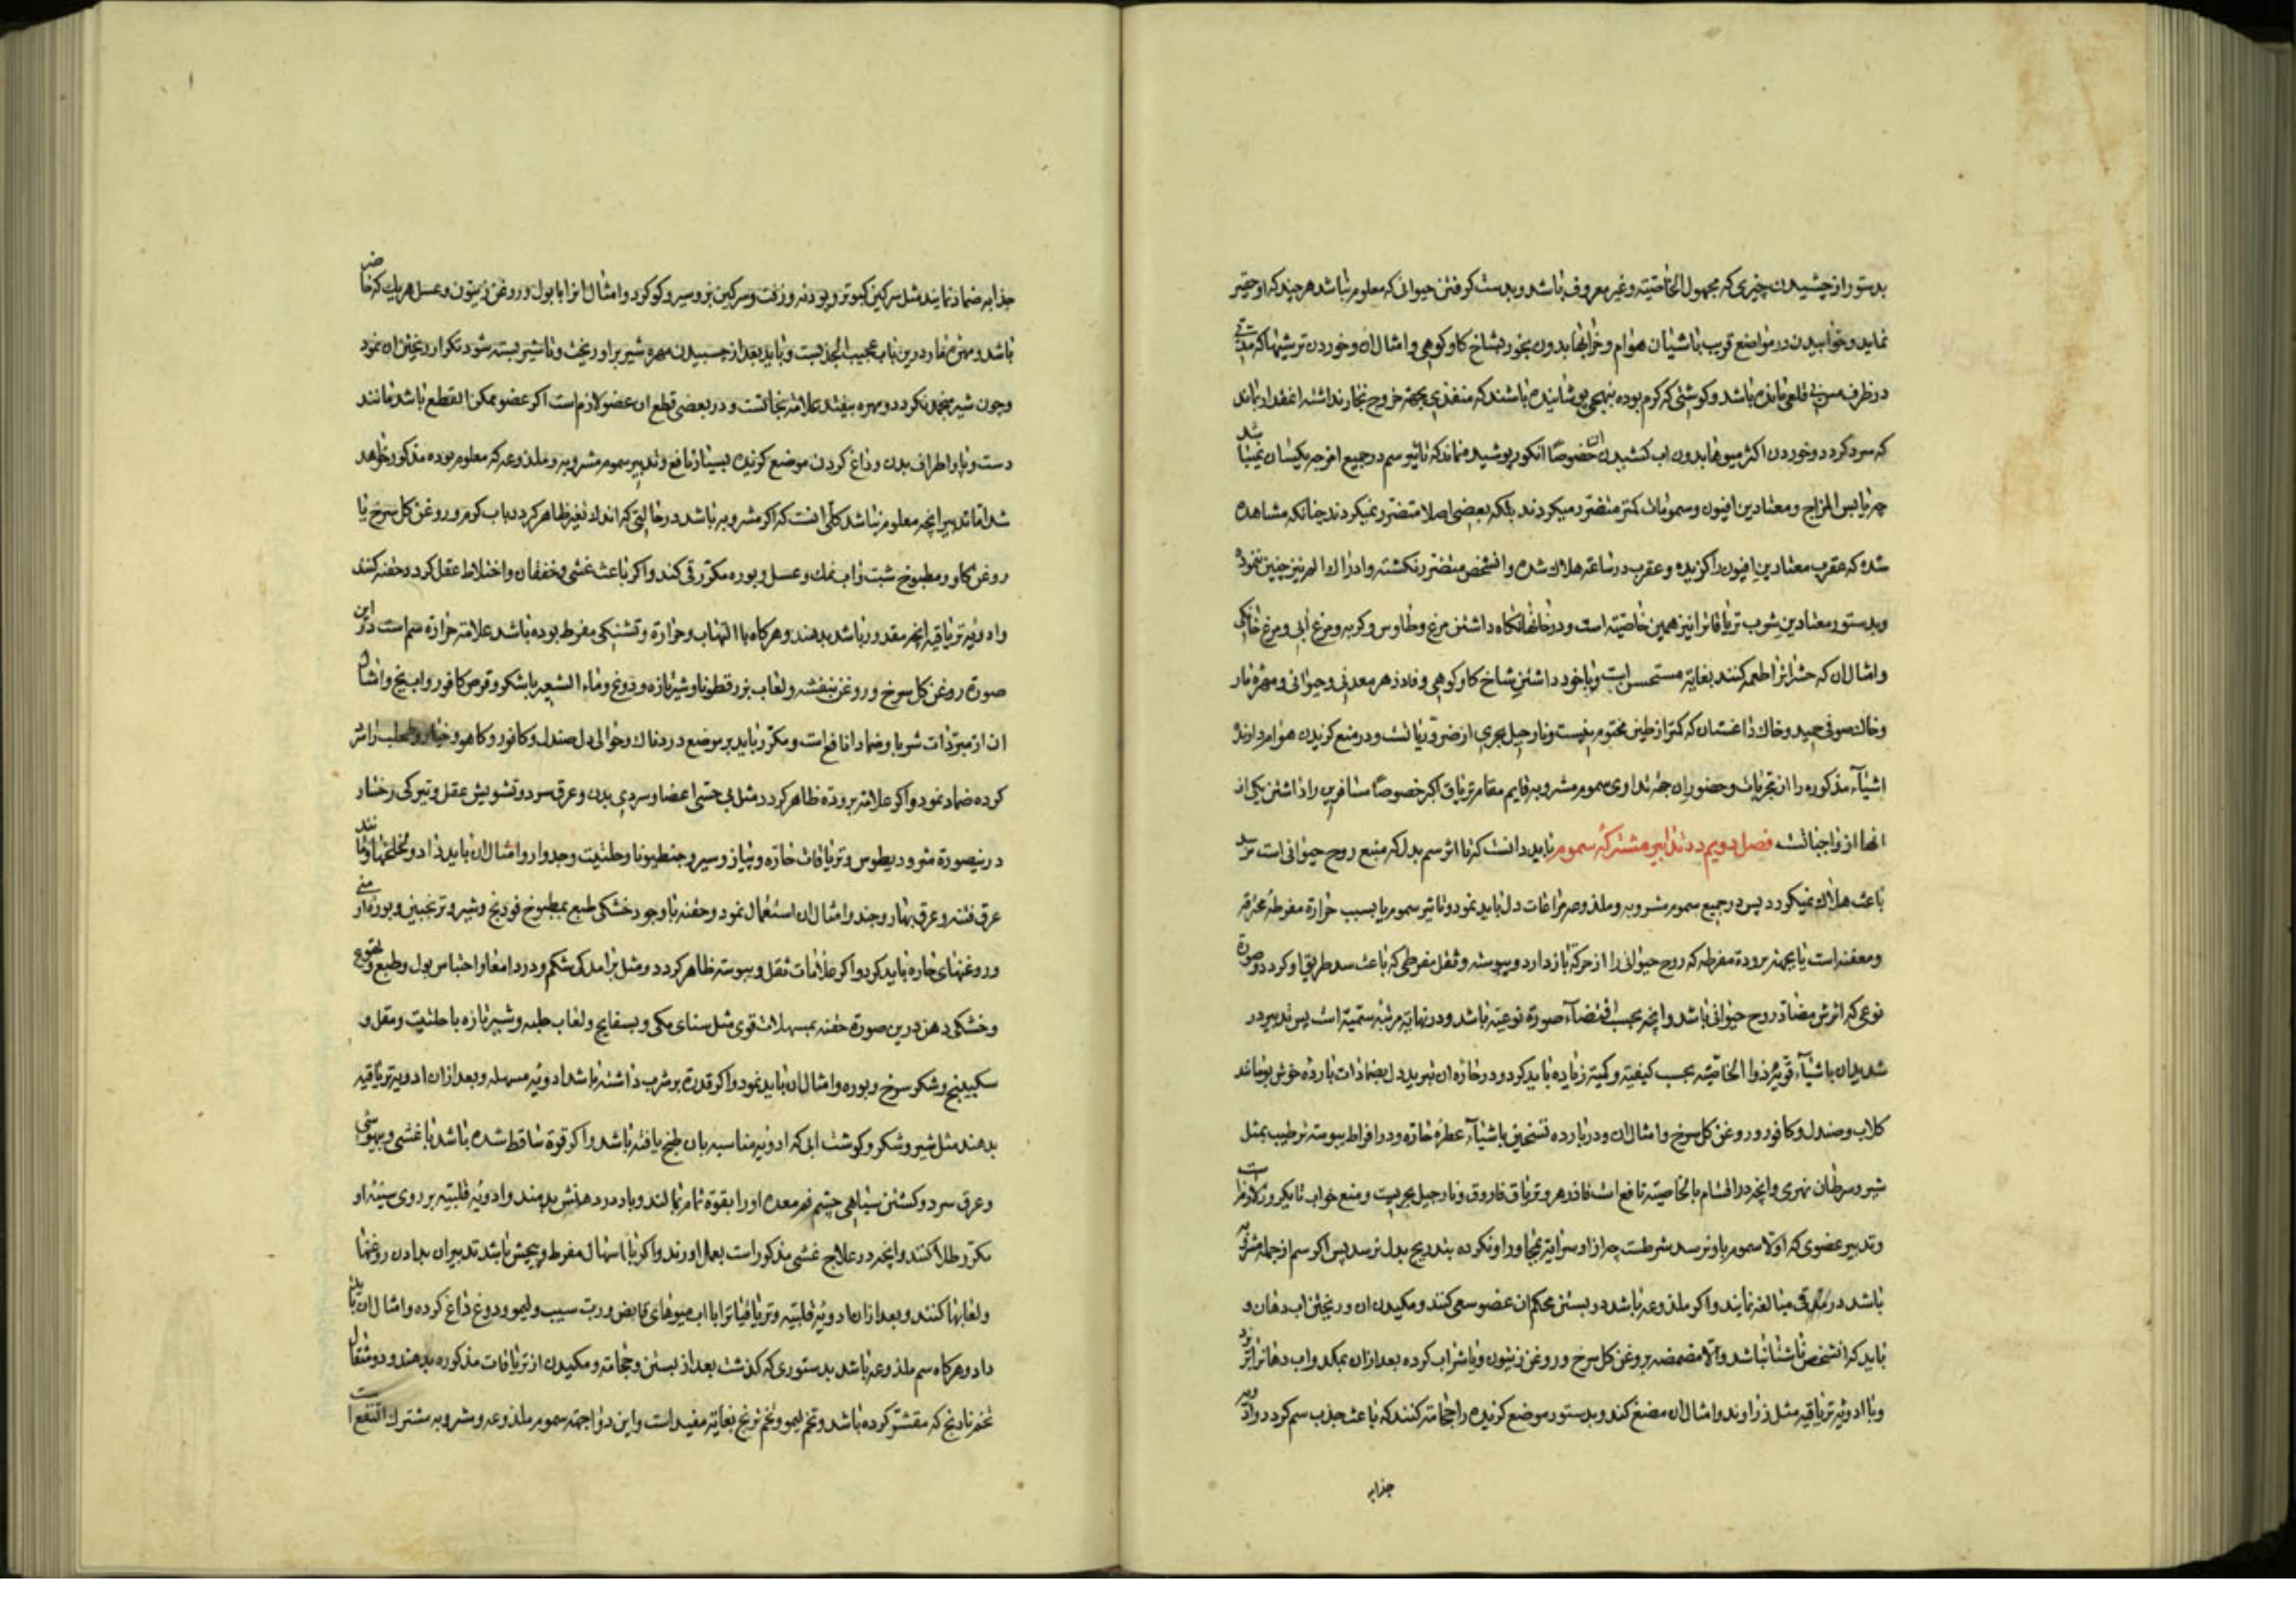 بدستور از چشیدن چیزی که مجهول الخاصیته و غیر معروف باشد و بدست کرفتن حیوانی که معلوم نباشد هر چند که او حقیر
نماید و خوابیدن در مواضع قریب باشیان هوام و خرابها بدون بخور بشاخ کاو کوهی و امثال ان و خوردن ترشیها که مدتی
در ظرف مس بی قلعی مانده باشد و کوشتی که کرم بوده بنهجی پوشانیده باشند که منفذی بجهة خروج بخار نداشته انقدر بماند
که سرد کردد و خوردن اکثر میوها بدون اب کشیدن ان خصوصا انکور پوشیده نماند که تاثیر سم در جمیع امزجه یکسان نمیباشد
چه یابس المزاج و معتادین افیون و سمومات کمتر متضرر میکردند بلکه بعضی اصلا متضرر نمیکردند چنانکه مشاهده
شده که عقرب معتادین افیون را کزیده و عقرب در ساعة هلاک شده و انشخص متضرر نکشته و ادراک الم نیز چنین ننموده
و بدستور معتادین شرب تریاقات را نیز همین خاصیته است و در خانها نکاه داشتن مرغ و طاوس و کربه و مرغ آبی و مرغ خانکی
و امثال ان که حشرات را طعمه کنند بغایة مستحسن است و با خود داشتن شاخ کاو کوهی و فادزهر معدنی و حیوانی و مهره مار
و خاک صوفی حمید و خاک داغستان که کمتر از طین مختوم نیست و نارجیل بحری از ضروریاتست و در منع کزیدن هوام دارند
اشیآء مذکوره را از تجربات و حضور ان جهة تداوی سموم مشروبه قایم مقام تریاق اکبر خصوصا مسافرین را داشتن یکی از
انها از واجباتست فصل دویم در تدابیر مشترکه سموم باید دانست که تا اثر سم بدل که منبع روح حیوانی است نرسد
باعث هلاک نمیکردد پس در جمیع سموم مشروبه و ملذوعه مراعات دل باید نمود و تاثیر سموم یا بسبب حرارة مفرطه محرقه
و معفنه است یا بجهة برودة مفرطه که روح حیوانی را از حرکة باز دارد و یبوسته و ثقل مفرطی که باعث سد طریق او کردد و صورة
نوعی که اثرش مضاد روح حیوانی باشد و انچه بحسب اقتضآء صورة نوعیه باشد و در نهایة مرتبه سمیة است پس تدبیر در
شدیدان باشیآء قویه ذوا الخاصیته بحسب کیفیته و کمیته زیاده باید کرد و در حاره ان تبرید دل بضمادات بارده خوش بو مانند
کلاب و صندل و کافور و روغن کل سرخ و امثال ان و در بارده تسخین باشیآء عطره حاره و در افراط یبوسته ترطیب بمثل
شیر و سرطان نهری و انچه در اقسام بالخاصیته نافع است فادزهر و تریاق فاروق و نارجیل بحریست و منع خواب تا یکروز لازم است
و تدبیر عضوی که اولا سموم باو رسد شرطست چه از او سرایة بمجاور او نکرده بتدریج بدل نرسد پس اکر سم از جمله مشروبه
باشد در قی مبالغه نمایند و اکر ملذوعه باشد در بستن محکم ان عضو سعی کنند و مکیدن ان و ریختن اب دهان و
باید که انشخص ناشتا نباشد و الا مضمضه بروغن کل سرخ و روغن زیتون و یا شراب کرده بعد از ان بمکد و اب دهانرا بریزد
و با ادویه تریاقیه مثل زراوند و امثال ان مضغ کند و بدستور موضع کزیده را حجامة کنند که باعث جذب سم کردد و ادویه
جذابه
جذابه ضماد نمایند مثل سرکین کبوتر و پودنه و زفت و سرکین بز و سیر و کوکرد و امثال انرا با بول و روغن زیتون و عسل هر یک که حاضر
باشد و مهره مار درین باب عجیب الجذبست و باید بعد از چسبیدن مهره شیر بر او ریخت و تا شیر بسته شود تکرار ریختن ان نمود
و چون شیر منجمد نکردد و مهره بیفتد علامة نجاتست و در بعضی قطع ان عضو لازم است اکر عضو ممکن القطع باشد مانند
دست و پا و اطراف بدن و داغ کردن موضع کزیده بسیار نافع و تدبیر سموم مشروبه و ملذوعه که معلوم بوده مذکور خواهد
شد اما تدبیر انچه معلوم نباشد کلی انست که اکر مشروبه باشد در حالتی که اندک تغیر ظاهر کردد باب کرم و روغن کل سرخ یا
روغن کاو و مطبوخ شبت و اب نمک و عسل و بوره مکرر قی کند و اکر باعث غشی و خفقان و اختلاط عقل کردد حقنه کنند
و ادویه تریاقیه انچه مقدور باشد بدهند و هر کاه با التهاب و حرارة و تشنکی مفرط بوده باشد علامة حرارة سم است در این
صورة روغن کل سرخ و روغن بنفشه و لعاب بزرقطونا و شیر تازه و دوغ و ماء الشعیر با شکر و قرص کافور و اب یخ و امثال
ان از مبردات شربا و ضمادا نافع است و مکرر باید بر موضع دردناک و حوالی دل صندل و کافور و کاهو و خیار و طحلب را تر
کرده ضماد نمود و اکر علامة برودة ظاهر کردد مثل بی حسی اعضا و سردی بدن و عرق سرد و تشویش عقل و تیرکی رخسار
درینصورة مثرودیطوس و تریاقات حاره و پیاز و سیر و جنطیانا و حلتیت و جدوار و امثال ان باید داد و تخلخها مانند
عرق فتنه و عرق بهار و جند و امثال ان استعمال نمود و حقنه با وجود خشکی طبع بمطبوخ فودنج و شیر و ترنجبین و بوره ارمنی
و روغنهای حاره باید کرد و اکر علامات ثقل و یبوسته ظاهر کردد و مثل برامدکی شکم و درد امعا و احتباس بول و طبع و تهوع
و خشکی دهن درین صورة حقنه بمسهلات قوی مثل سنای مکی و بسفایج و لعاب حلبه و شیر تازه با حلتیت و مقل و
سکبینج و شکر سرخ و بوره و امثال ان باید نمود و اکر قدرة بر شرب داشته باشد ادویه مسهله و بعد از ان ادویه تریاقیه
بدهند مثل شیر و شکر و کوشت ابی که ادویه مناسبه بان طبخ یافته باشد و اکر قوة ساقط شده باشد با غشی و بیهوشی
و عرق سرد و کشتن سیاهی چشم فم معده او را بقوة تمام بمالند و باد در دهنش بدمند و ادویه قلبیه بر روی سینه او
مکرر طلا کنند و انچه در علاج غشی مذکور است بعمل اورند و اکر با اسهال مفرط و پیچش باشد تدبیر ان بدادن روغنها
و لعابها کنند و بعد از ان ادویه قلبیه و تریاقیاترا با اب میوهای قابض و رب سیب و لیمو و دوغ داغ کرده و امثال ان باید
داد و هر کاه سم ملذوعه باشد بدستوری که کذشت بعد از بستن و حجامة و مکیدن از تریاقات مذکوره بدهند و دو مثقال
تخم نارنج که مقشر کرده باشد و تخم لیمو و تخم ترنج بغایة مفید است و این دوا جهة سموم ملذوعه و مشروبه مشترک النفع است